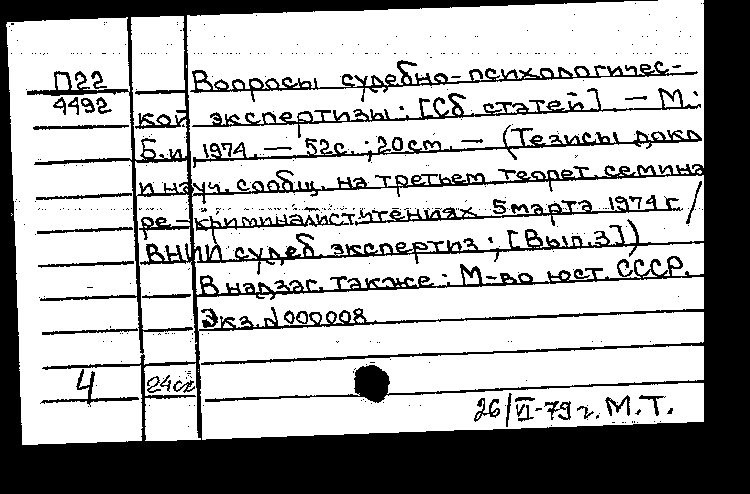 П22
4492
Вопросы судебно-психологичес-
кой экспертизы: [Сб. статей]. — М.:
Б.и., 1974. — 52с.; 20см. — (Тезисы докл
и науч. сообщ. на третьем теорет. семина
ре-криминалист.чтениях 5марта 1974 г. /
ВНИИ судеб. экспертиз; [Вып.3])
В надзаг. также: М-во юст. СССР.
Экз. №000008
4
26/VI-79 г. М.Т.